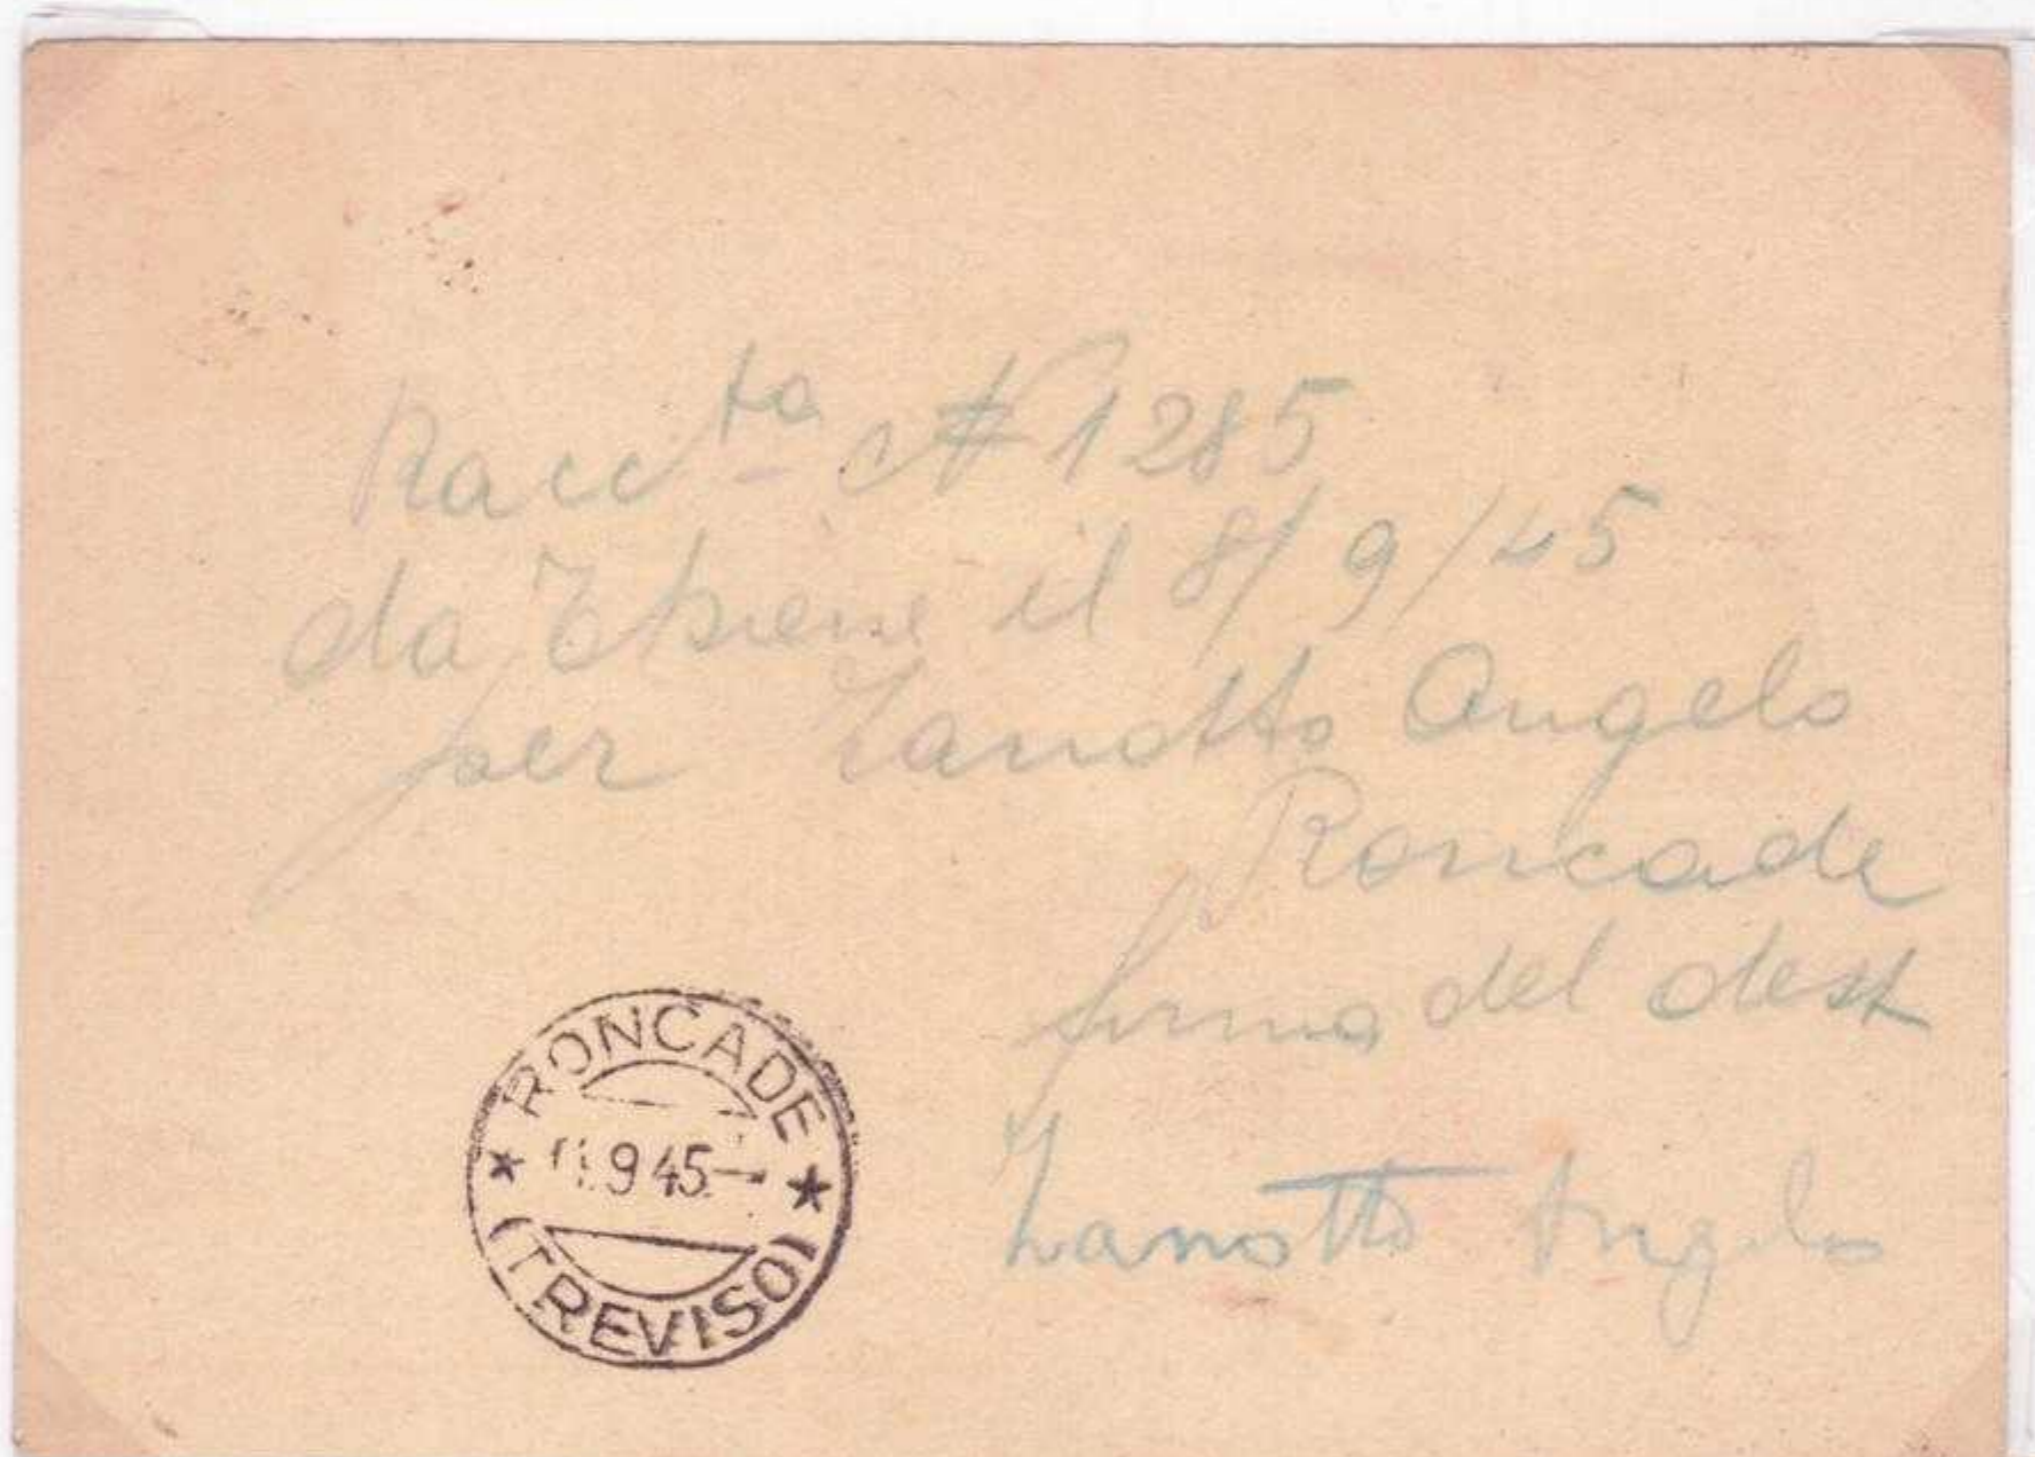 Racc.ta N 1285
da Thiene il 8/9/45
per Zanotto Angelo
Roncade
firma del dest
Zanotto Angelo
RONCADE
9 45
(TREVISO)